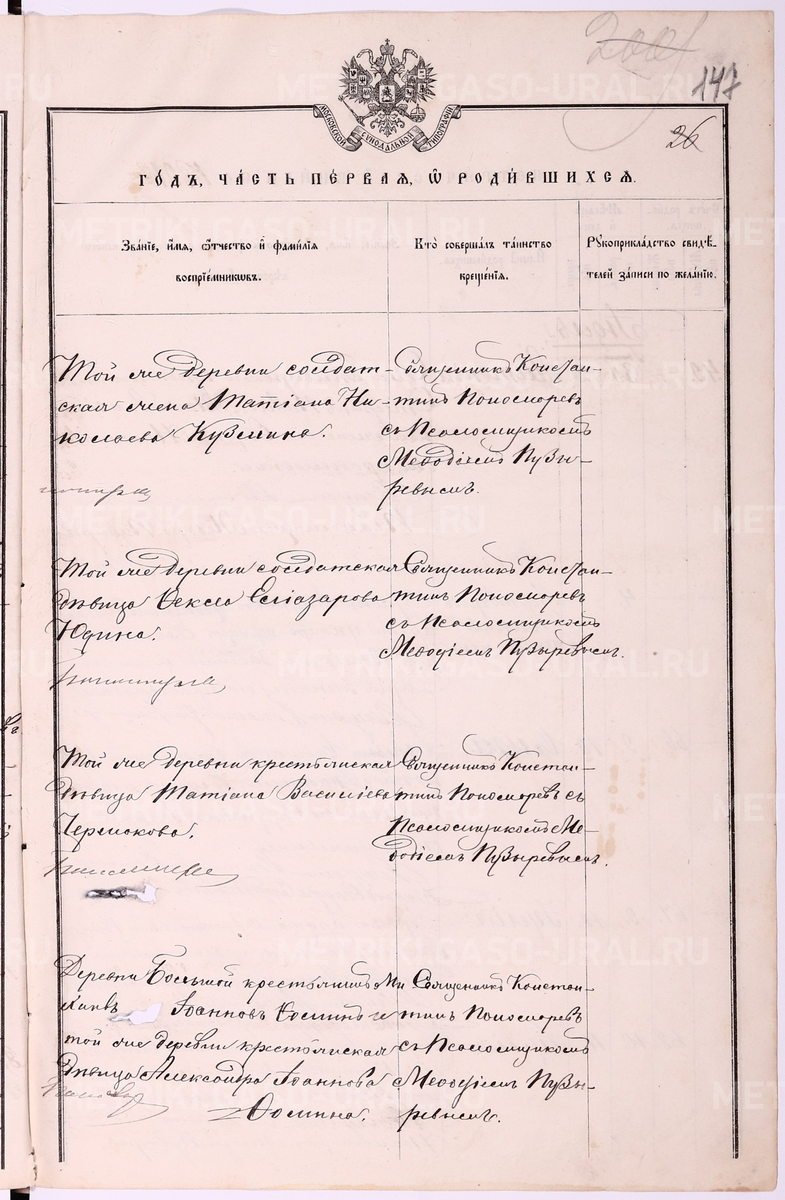 2001
147
26
МОСКОВСКОЙ СѴНОДАЛЬНОЙ ТИПОГРАФІИ
ГОДЪ, ЧАСТЬ ПЕРВАЯ, Ѡ РОДИВШИХСЯ.
Званіе, имя, отчество и фамилія воспріемниковъ.
Кто совершалъ таинство крещенія.
Рукоприкладство свидѣтелей записи по желанію.
Той же деревни солдат-
ская жена Татіана Ни-
колаева Кузмина.
Священникъ Констан-
тинъ Пономаревъ
съ Псаломщикомъ
Меѳодіемъ Пузы-
ревымъ.
Той же деревни солдатская
дѣвица Ѳекла Еліазарова
Юдина.
Священникъ Констан-
тинъ Пономаревъ
съ Псаломщикомъ
Меѳодіемъ Пузыревымъ.
Той же деревни крестьянская
дѣвица Татіана Василіева
Чермакова.
Священникъ Констан-
тинъ Пономаревъ съ
Псаломщикомъ Ме-
ѳодіемъ Пузыревымъ.
Деревни Большой крестьянинъ Ми
хаилъ Іоанновъ Ѳоминъ и
той же деревни крестьянская
дѣвица Александра Іоаннова
Ѳомина.
Священникъ Констан-
тинъ Пономаревъ
съ Псаломщикомъ
Меѳодіемъ Пузы-
ревымъ.
METRIKI.GASO-URAL.RU